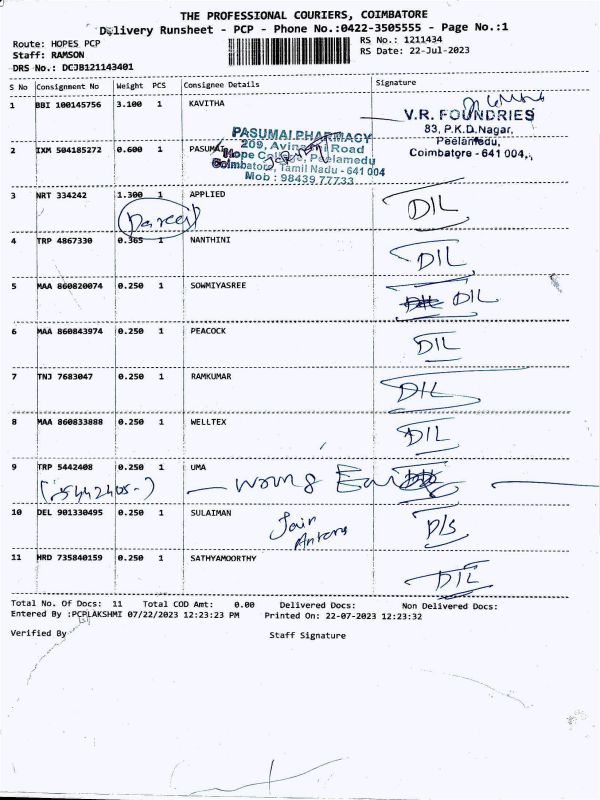 THE PROFESSIONAL COURIERS, COIMBATORE
Delivery Runsheet - PCP - Phone No.:0422-3505555 - Page No.:1
Route: HOPES PCP RS No.: 1211434
Staff: RAMSON RS Date: 22-Jul-2023
DRS No.: DCJB121143401
S No Consignment No Weight PCS Consignee Details Signature
1 BBI 100145756 3.100 1 KAVITHA
V.R. FOUNDRIES
83, P.K.D.Nagar,
Peelamedu,
Coimbatore - 641 004.
2 IXM 504185272 0.600 1 PASUMAI
PASUMAI PHARMACY
209, Avinashi Road
Hope College, Peelamedu
Coimbatore, Tamil Nadu - 641 004
Mob : 98439 77733
3 NRT 334242 1.300 1 APPLIED DIL
Parcel
4 TRP 4867330 0.365 1 NANTHINI DIL
5 MAA 860820074 0.250 1 SOWMIYASREE DIL DIL
6 MAA 860843974 0.250 1 PEACOCK DIL
7 TNJ 7683047 0.250 1 RAMKUMAR DIL
8 MAA 860833888 0.250 1 WELLTEX DIL
9 TRP 5442408 0.250 1 UMA
wrong
10 DEL 901330495 0.250 1 SULAIMAN D/S
11 HRD 735840159 0.250 1 SATHYAMOORTHY DIL
Total No. Of Docs: 11 Total COD Amt: 0.00 Delivered Docs: Non Delivered Docs:
Entered By :PCPLAKSHMI 07/22/2023 12:23:23 PM Printed On: 22-07-2023 12:23:32
Verified By Staff Signature